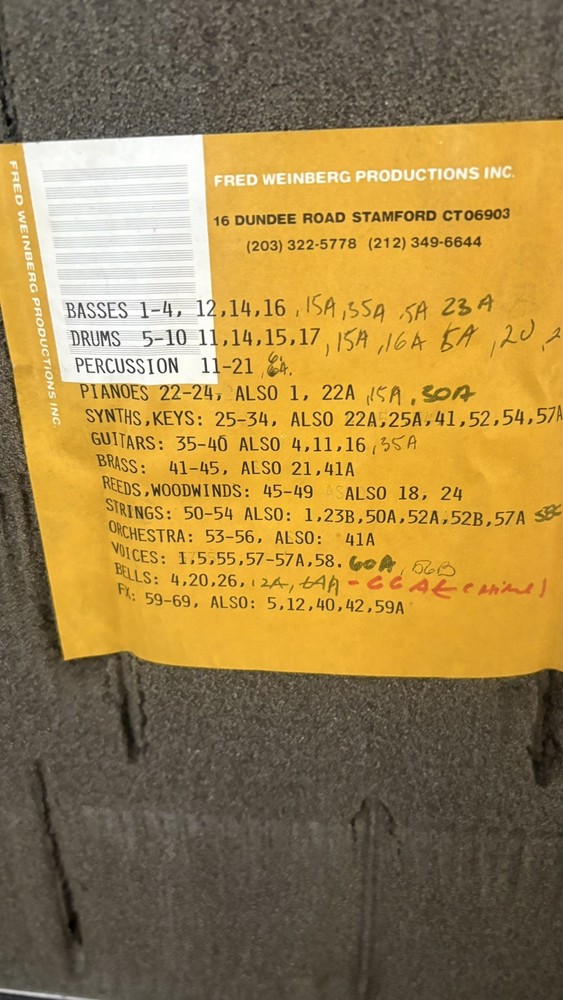 FRED WEINBERG PRODUCTIONS INC.
FRED WEINBERG PRODUCTIONS INC.
16 DUNDEE ROAD STAMFORD CT06903
(203) 322-5778 (212) 349-6644
BASSES 1-4, 12,14,16 ,15A,35A ,5A 23A
DRUMS 5-10 11,14,15,17 ,15A ,16A 5A ,20
PERCUSSION 11-21
PIANOES 22-24, ALSO 1, 22A ,15A ,30A
SYNTHS,KEYS: 25-34, ALSO 22A,25A,41,52,54,57A
GUITARS: 35-40 ALSO 4,11,16 ,35A
BRASS: 41-45, ALSO 21,41A
REEDS,WOODWINDS: 45-49 ALSO 18, 24
STRINGS: 50-54 ALSO: 1,23B,50A,52A,52B,57A
ORCHESTRA: 53-56, ALSO: 41A
VOICES: 1,5,55,57-57A,58. 60A, 56B
BELLS: 4,20,26, 12A, 64A - 66A
FX: 59-69, ALSO: 5,12,40,42,59A